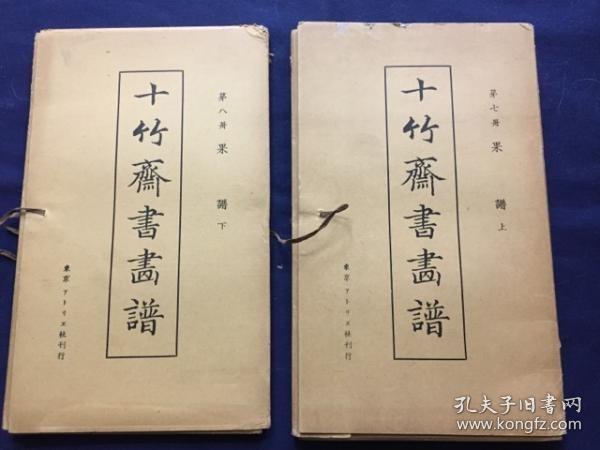 第七冊 果譜 上
十竹齋書畫譜
東京 アトリヱ社刊行
第八冊 果譜 下
十竹齋書畫譜
東京 アトリヱ社刊行
孔夫子旧书网
www.kongfz.com